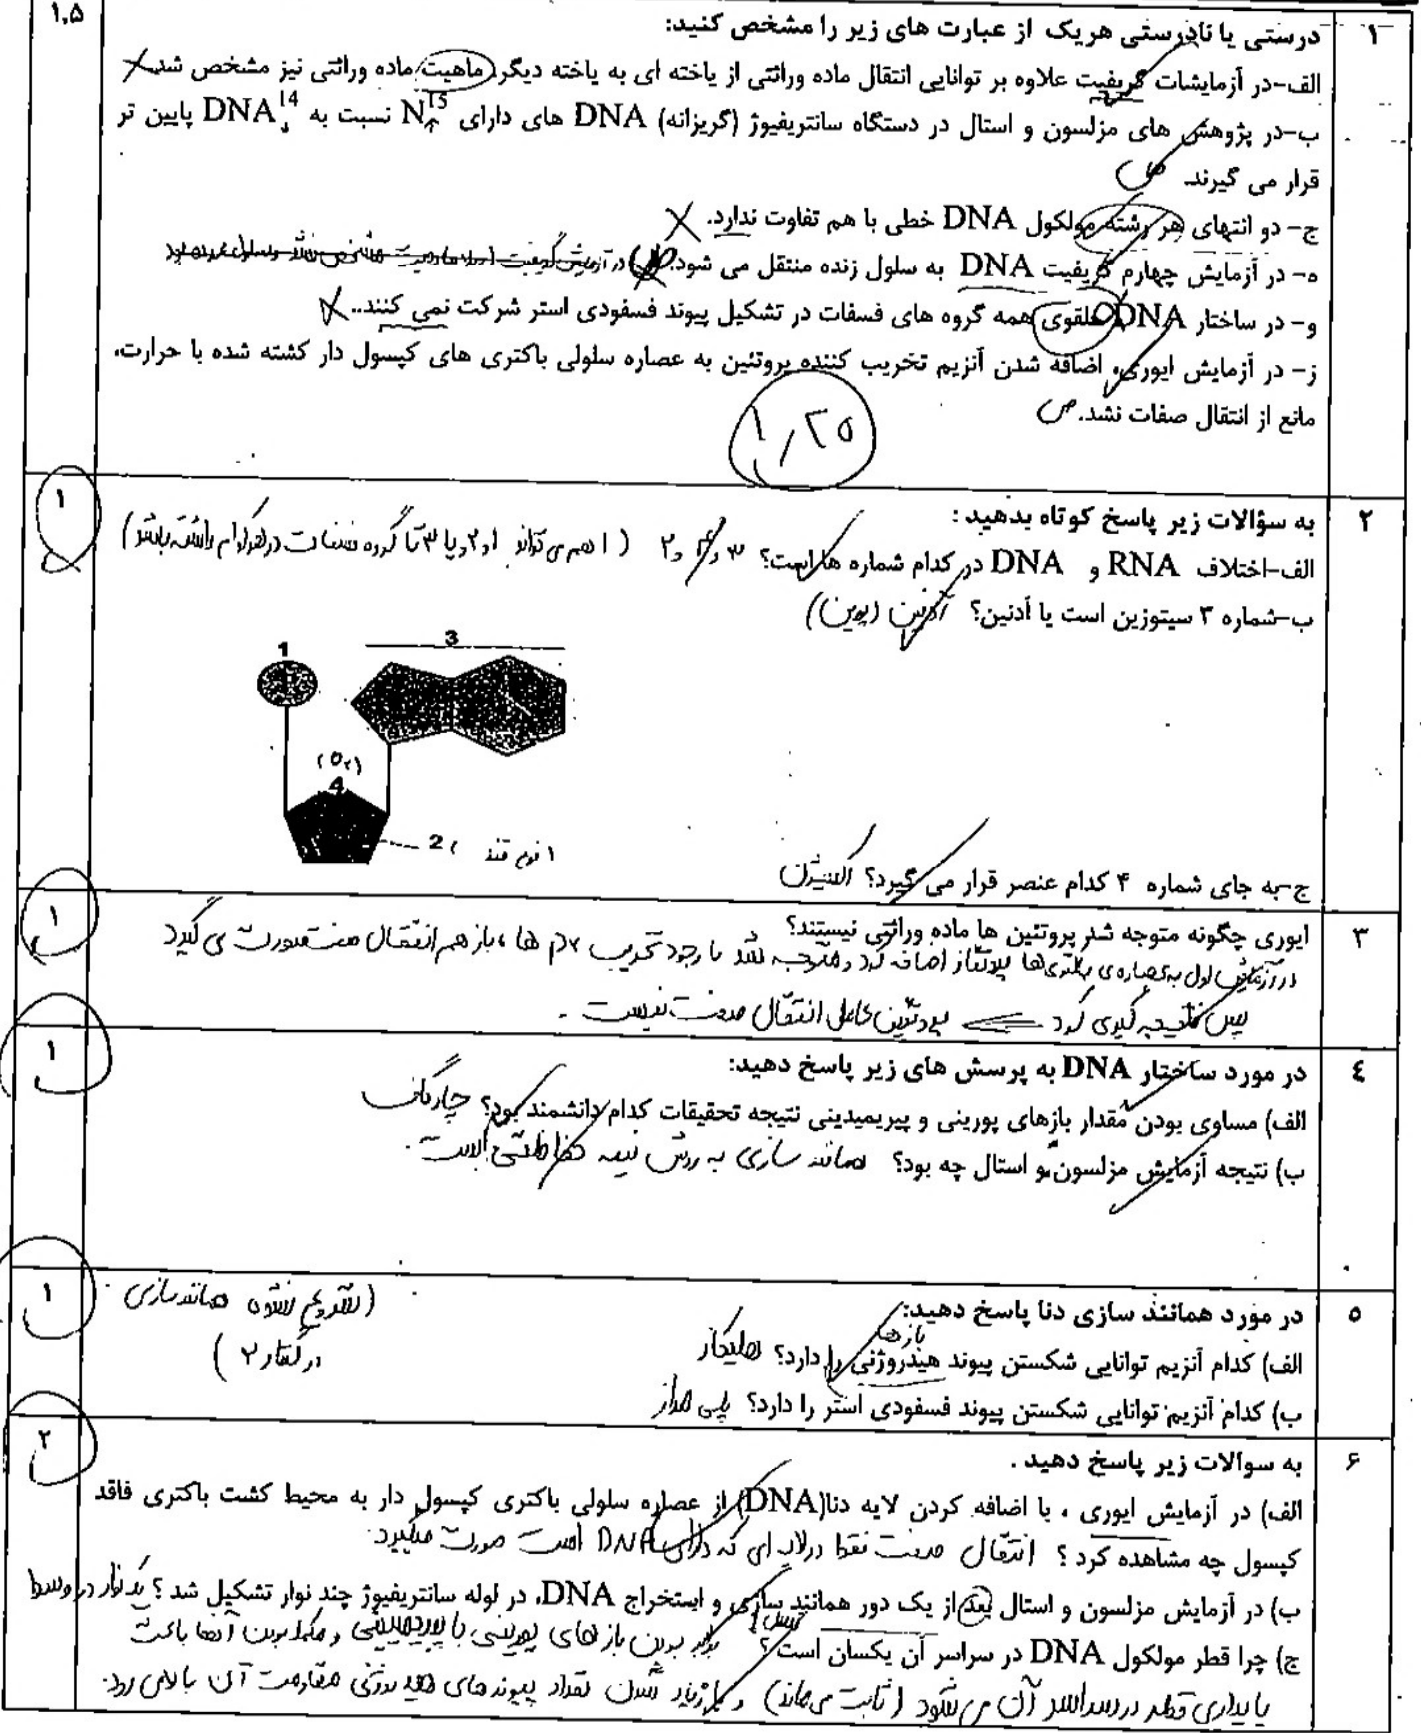 ۱ درستی یا نادرستی هریک از عبارت های زیر را مشخص کنید: ۱,۵
الف-در آزمایشات گریفیت علاوه بر توانایی انتقال ماده وراثتی از یاخته ای به یاخته دیگر، ماهیت ماده وراثتی نیز مشخص شد.
ب-در پژوهش های مزلسون و استال در دستگاه سانتریفیوژ (گریزانه) DNA های دارای N15 نسبت به DNA14 پایین تر
قرار می گیرند. ص
ج- دو انتهای هر رشته مولکول DNA خطی با هم تفاوت ندارد.
ه- در آزمایش چهارم گریفیت DNA به سلول زنده منتقل می شود.
و- در ساختار DNA حلقوی همه گروه های فسفات در تشکیل پیوند فسفودی استر شرکت نمی کنند..
ز- در آزمایش ایوری، اضافه شدن آنزیم تخریب کننده پروتئین به عصاره سلولی باکتری های کپسول دار کشته شده با حرارت،
مانع از انتقال صفات نشد. ص
۱,۲۵
۲ به سؤالات زیر پاسخ کوتاه بدهید : ۱
الف-اختلاف RNA و DNA در کدام شماره ها است؟ ۳ و ۲ (۱ هم می تواند ۱ و ۲ و یا ۳ تا گروه فسفات در هر کدام داشته باشد)
ب-شماره ۳ سیتوزین است یا آدنین؟ آدنین (پورین)
1
3
4
2 نوع قند
ج-به جای شماره ۴ کدام عنصر قرار می گیرد؟ اکسیژن
۳ ایوری چگونه متوجه شد پروتئین ها ماده وراثتی نیستند؟ ۱
در آزمایش اول به عصاره ی باکتری ها پروتئاز اضافه کرد و متوجه شد با وجود تخریب ها، باز هم انتقال صفت صورت می گیرد
پس نتیجه گیری کرد ⇐ پروتئین عامل انتقال صفت نیست.
۴ در مورد ساختار DNA به پرسش های زیر پاسخ دهید: ۱
الف) مساوی بودن مقدار بازهای پورینی و پیریمیدینی نتیجه تحقیقات کدام دانشمند بود؟ چارگاف
ب) نتیجه آزمایش مزلسون و استال چه بود؟ همانند سازی به روش نیمه حفاظتی است.
۵ در مورد همانند سازی دنا پاسخ دهید: ۱
الف) کدام آنزیم توانایی شکستن پیوند هیدروژنی بازها را دارد؟ هلیکاز (شروع نشده همانندسازی
در گفتار ۲)
ب) کدام آنزیم توانایی شکستن پیوند فسفودی استر را دارد؟ پلی مراز
۶ به سوالات زیر پاسخ دهید . ۲
الف) در آزمایش ایوری ، با اضافه کردن لایه دنا(DNA) از عصاره سلولی باکتری کپسول دار به محیط کشت باکتری فاقد
کپسول چه مشاهده کرد ؟ انتقال صفت فقط در لایه ای که دارای DNA است صورت میگیرد.
ب) در آزمایش مزلسون و استال بعد از یک دور همانند سازی و استخراج DNA، در لوله سانتریفیوژ چند نوار تشکیل شد ؟ یک نوار در وسط
ج) چرا قطر مولکول DNA در سراسر آن یکسان است ؟ بودن باز های پورینی با پیریمیدینی و مکمل بودن آنها باعث
پایداری قطر در سراسر آن می شود (ثابت می ماند) و با زیاد شدن تعداد پیوند های هیدروژنی مقاومت آن بالا می رود.